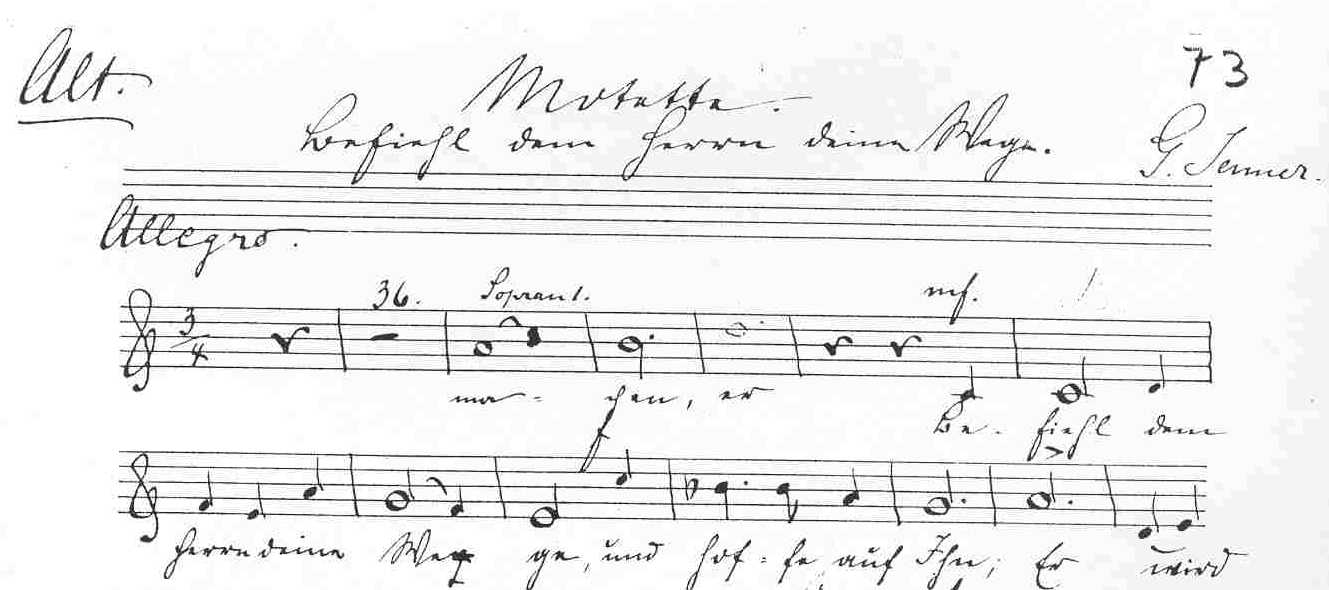 Alt.
73
Motette.
Befiehl dem Herrn deine Wege.
G. Jenner.
Allegro.
36. Sopran 1. mf.
3/4
ma- chen, er Be- fiehl dem
f >
Herrn deine We ge, und hof- fe auf Ihn; Er wird